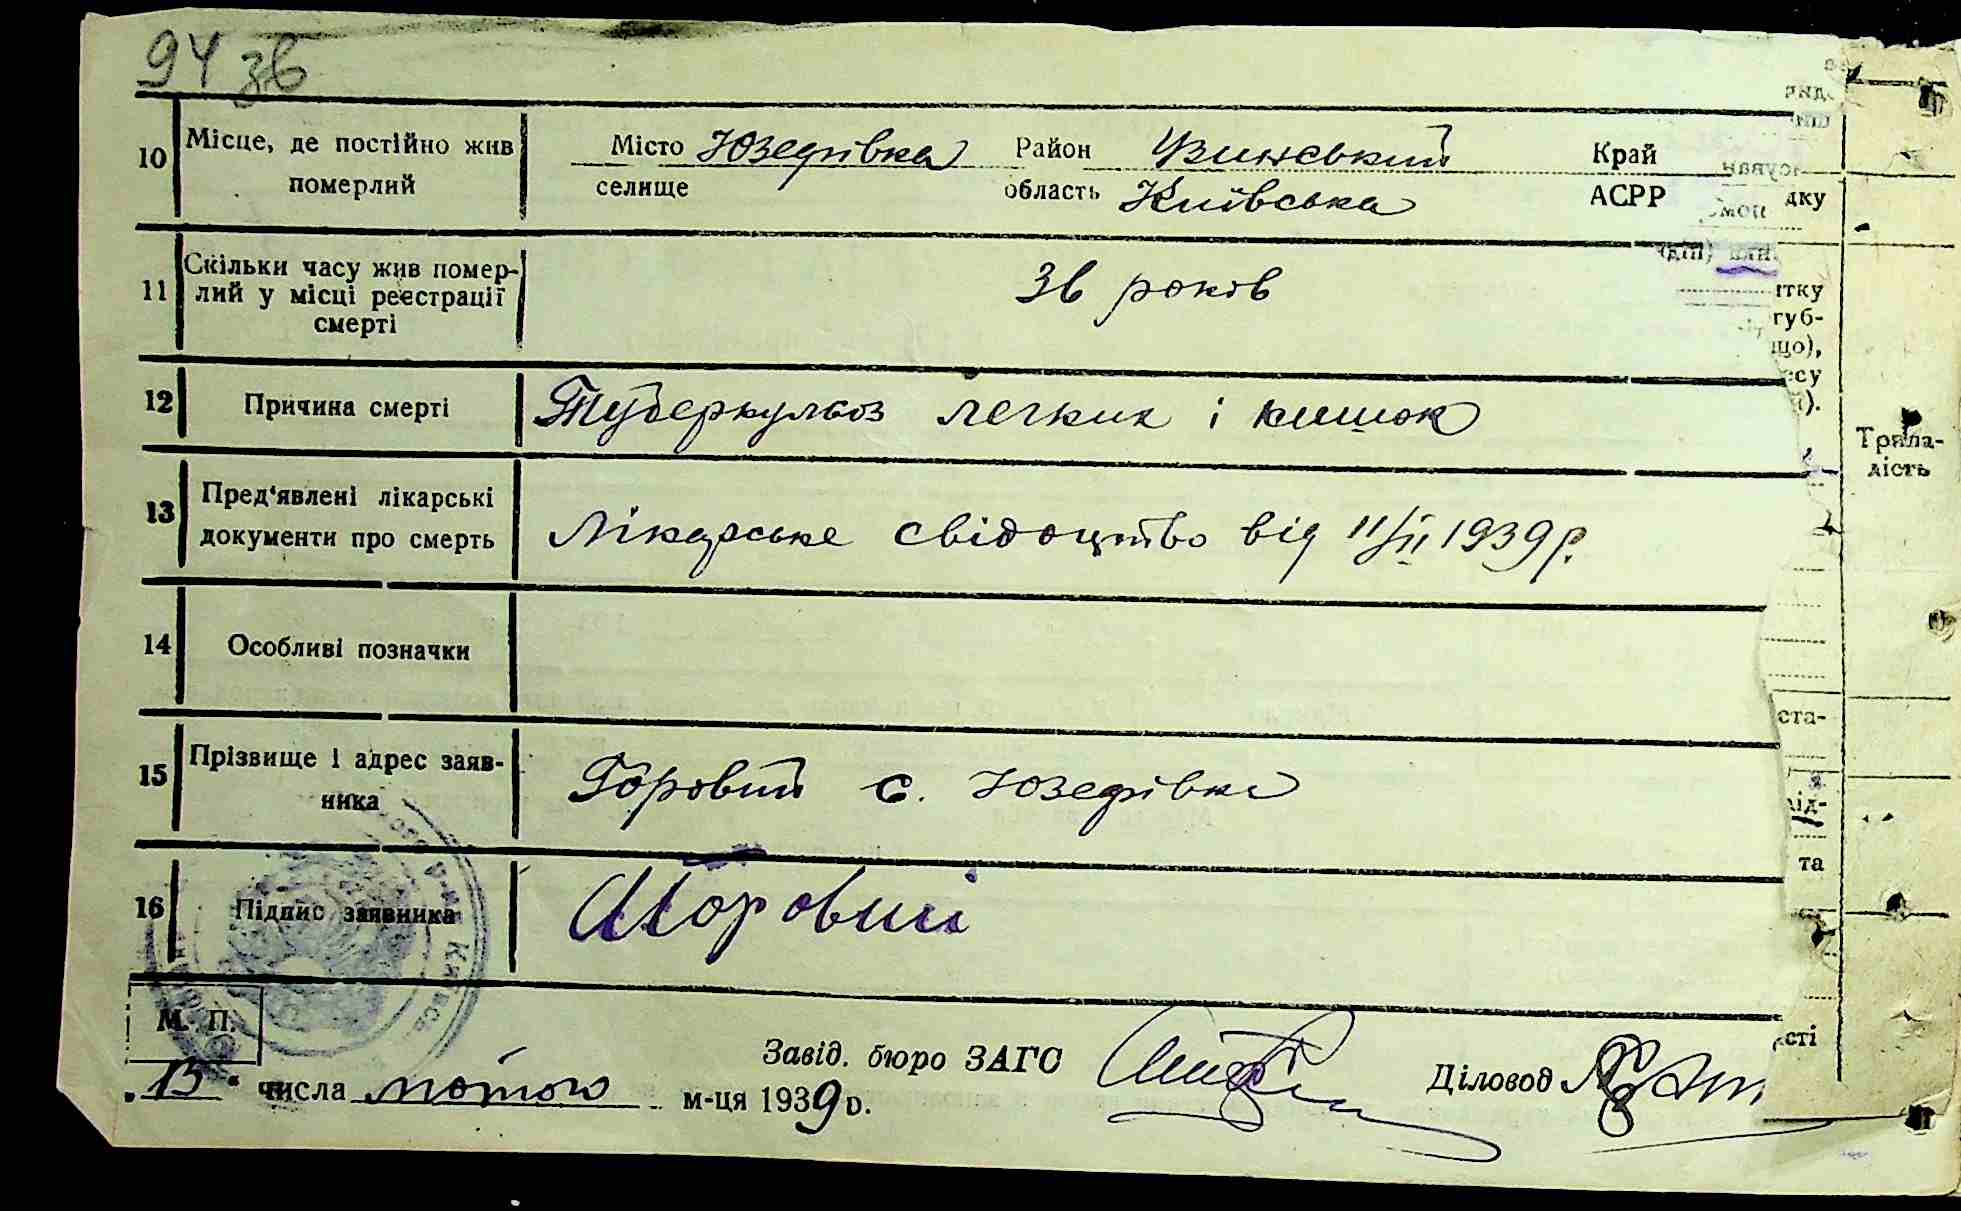 94 зв
10 Місце, де постійно жив Місто Юзефівка Район Узинський Край
померлий селище область Київська АСРР
11 Скільки часу жив помер-
лий у місці реєстрації 36 років
смерті
12 Причина смерті Туберкульоз легких і кишок
13 Пред'явлені лікарські
документи про смерть Лікарське свідоцтво від 11/II 1939 р.
14 Особливі позначки
15 Прізвище і адрес заяв- Горовий с. Юзефівка
ника
16 Підпис заявника
М. П.
Завід. бюро ЗАГС Діловод
"13" числа лютого м-ця 1939 р.
дку
тку
губ-
що),
Трива-
лість
ста-
від-
та
сті